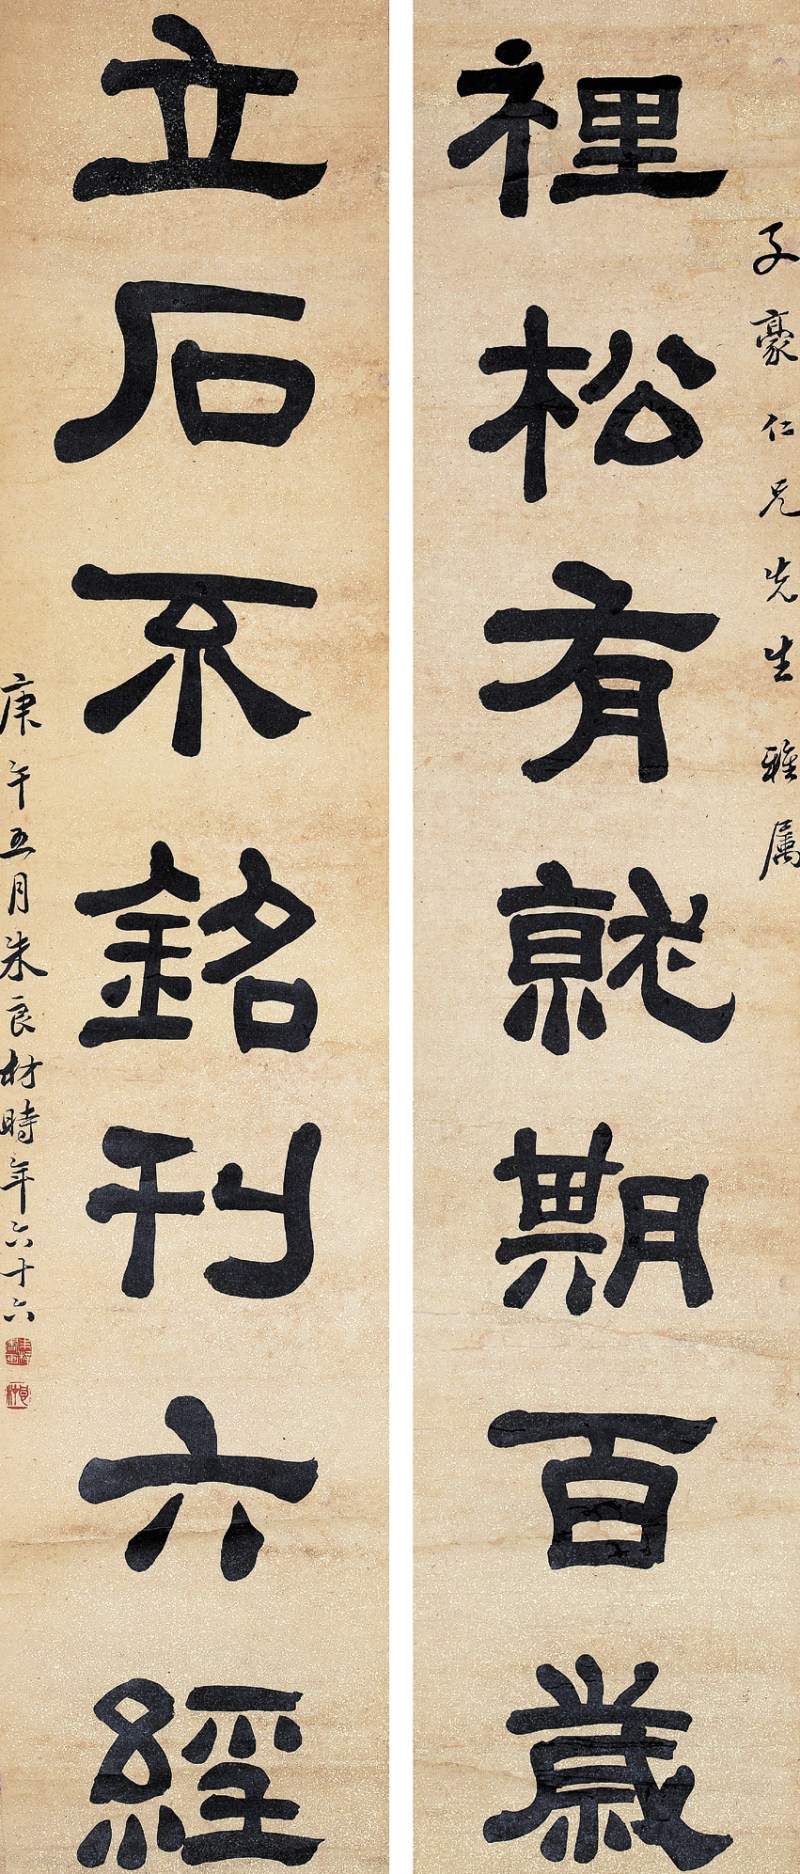 子豪仁兄先生雅属
裡松有就期百歲
立石不銘刊六經
庚午五月朱良材時年六十六